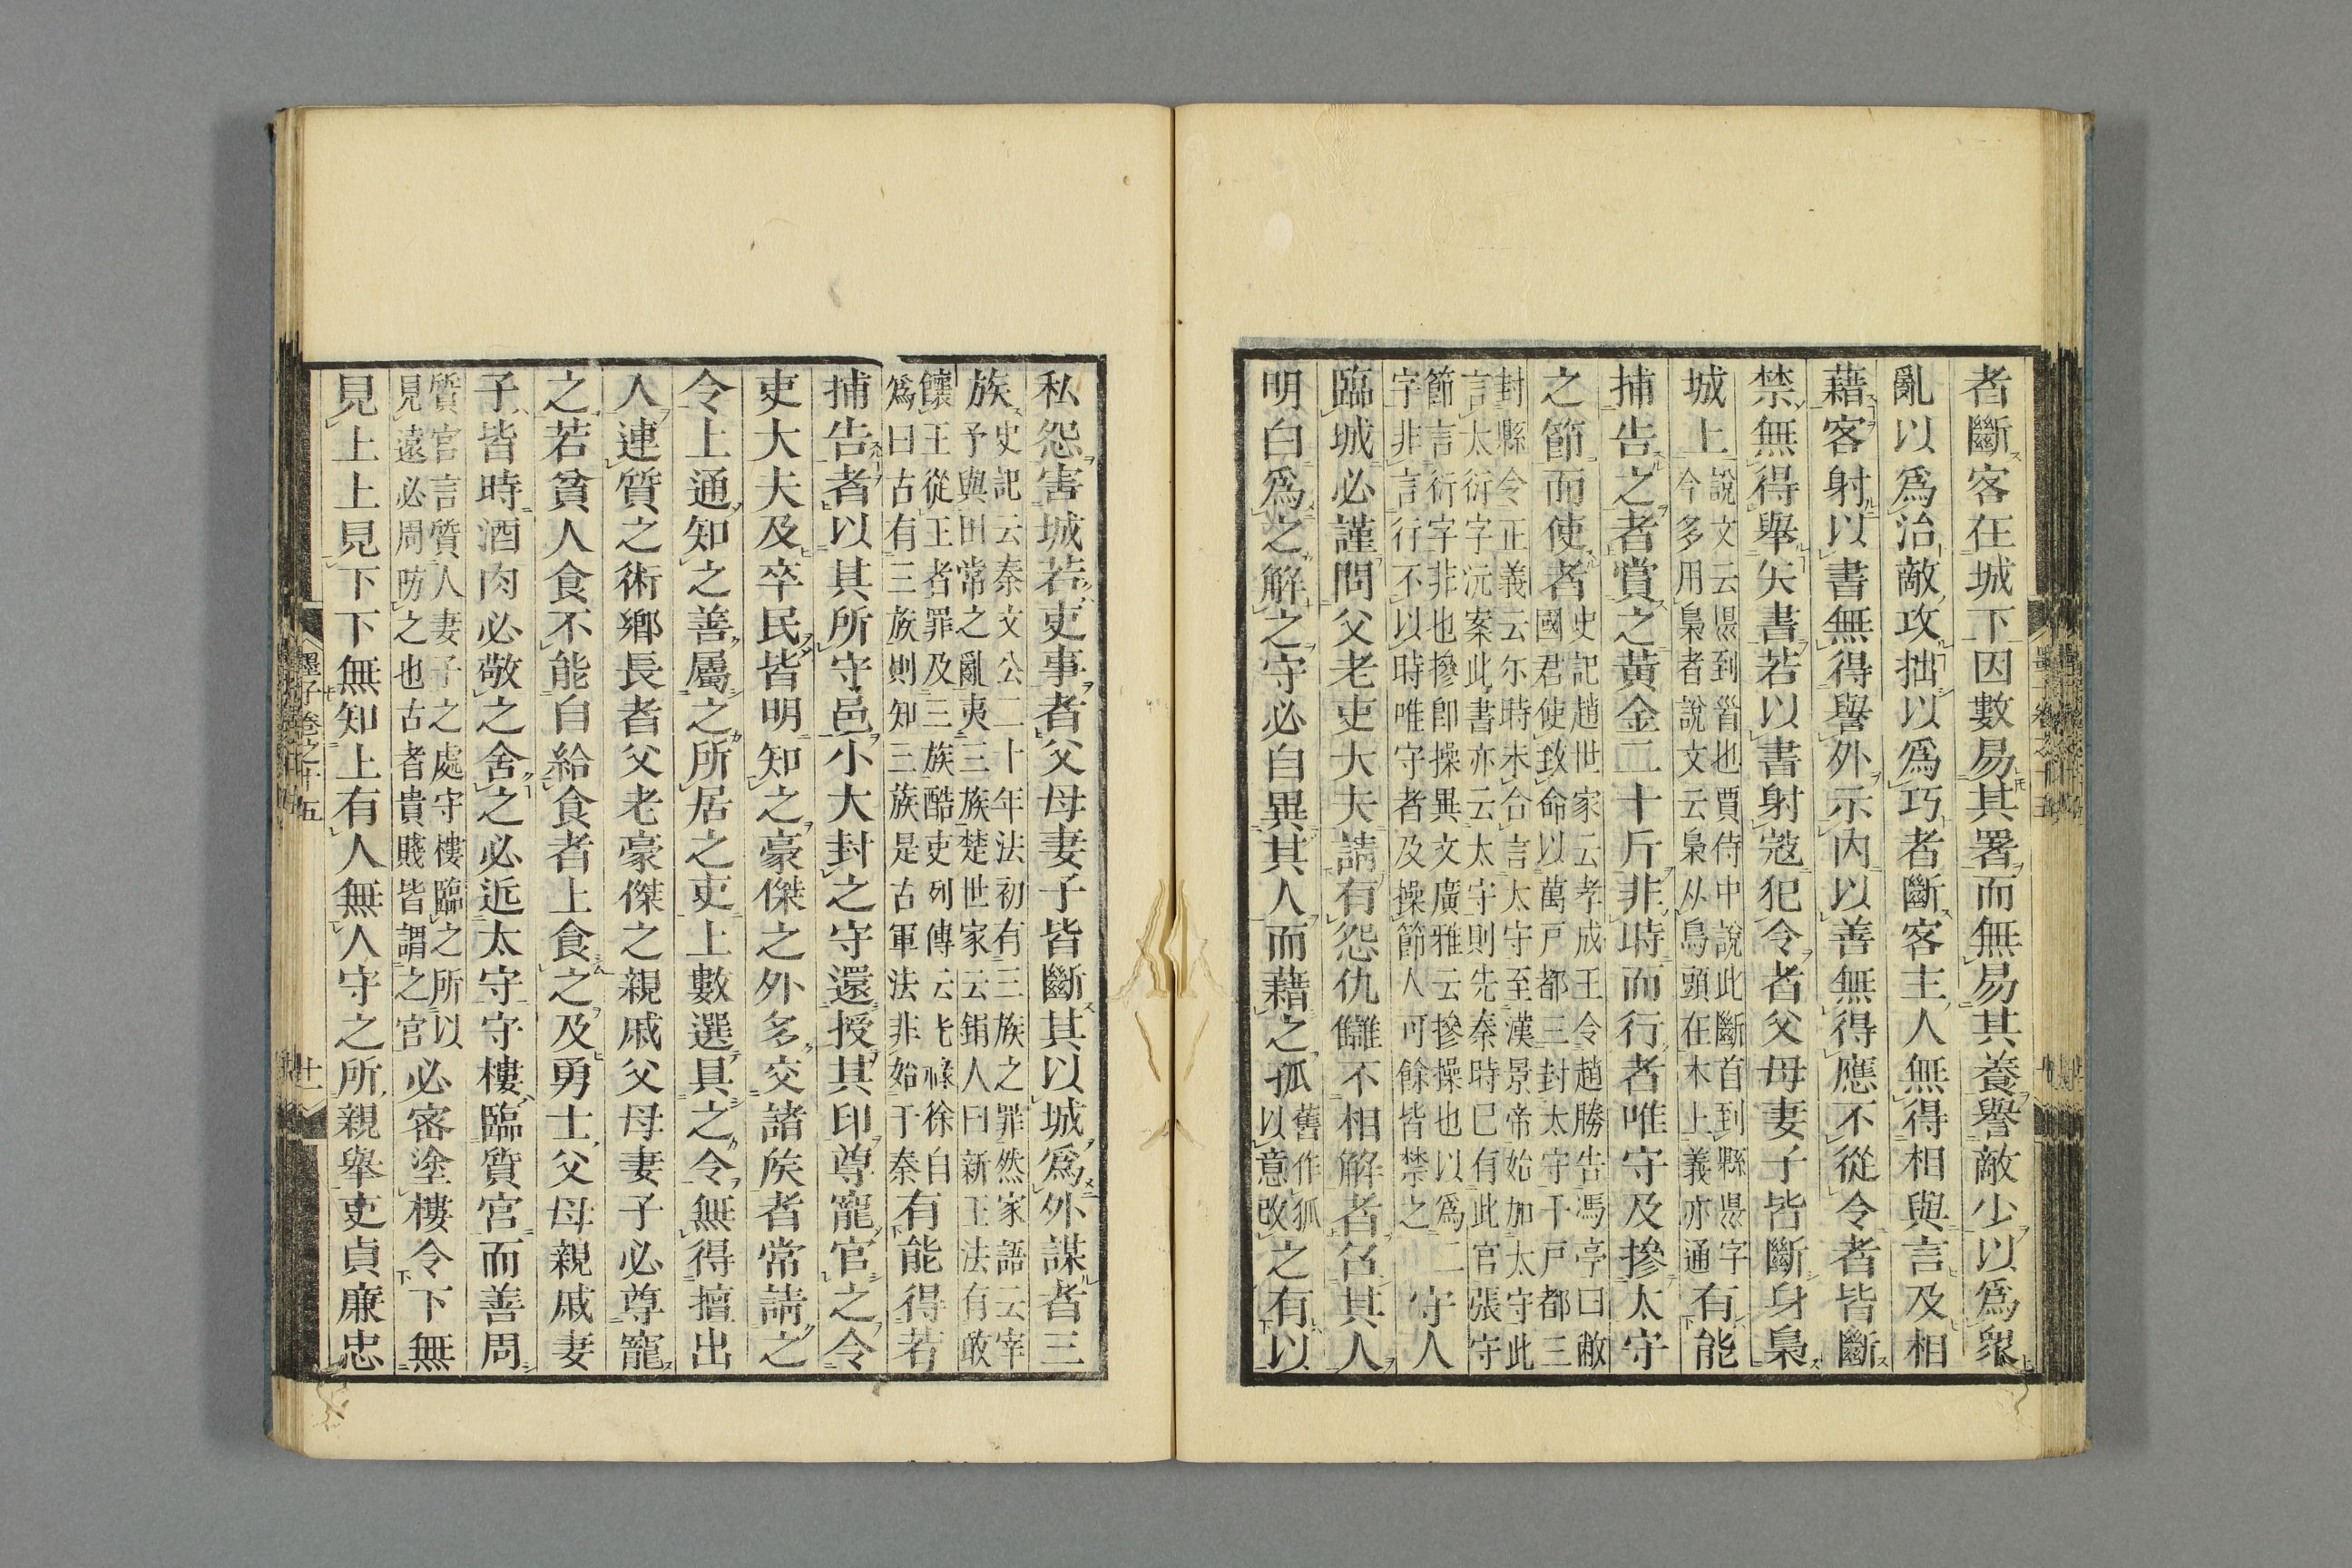 者斷客在城下因數易其署而無易其養譽敵少以爲衆
亂以爲治敵攻拙以爲巧者斷客主人無得相與言及相
藉客射以書無得譽外示內以善無得應不從令者皆斷
禁無得舉矢書若以書射寇犯令者父母妻子皆斷身梟
城上
說文云㬎到𩠐也賈侍中說此斷首到縣㬎字
今多用梟者說文云梟从鳥頭在木上義亦通
有能
捕告之者賞之黃金二十斤非時而行者唯守及摻太守
之節而使者
史記趙世家云孝成王令趙勝告馮亭曰敝
國君使致命以萬戶都三封太守千戶都三
封縣令正義云尓時未合言太守至漢景帝始加太守此
言太衍字沅案此書亦云太守則先秦時已有此官張守
節言衍字非也摻卽操異文廣雅云摻操也以爲二
字非言行不以時唯守者及操節人可餘皆禁之
守人
臨城必謹問父老吏大夫請有怨仇讎不相解者召其人
明白爲之解之守必自異其人而藉之孤
舊作狐
以意改
之有以
私怨害城若吏事者父母妻子皆斷其以城爲外謀者三
族
史記云秦文公二十年法初有三族之罪然家語云宰
予與田常之亂夷三族楚世家云鋗人曰新王法有敢
饟王從王者罪及三族酷吏列傳云光祿徐自
爲曰古有三族則知三族是古軍法非始于秦
有能得若
捕告者以其所守邑小大封之守還授其印尊寵官之令
吏大夫及卒民皆明知之豪傑之外多交諸矦者常請之
令上通知之善屬之所居之吏上數選具之令無得擅出
入連質之術鄉長者父老豪傑之親戚父母妻子必尊寵
之若貧人食不能自給食者上食之及勇士父母親戚妻
子皆時酒肉必敬之舍之必近太守守樓臨質宮而善周
質宮言質人妻子之處守樓臨之所以
見遠必周防之也古者貴賤皆謂之宮
必密塗樓令下無
見上上見下下無知上有人無人守之所親舉吏貞廉忠
墨子卷之十五
十一